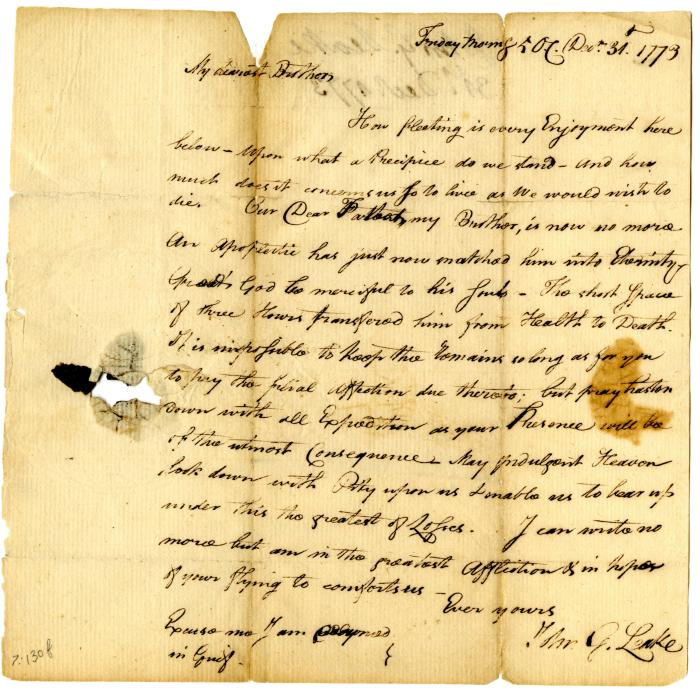 Friday morng 5 OC. Decr. 31st 1773
My dearest Brother
How fleeting is every Enjoyment here
below – upon what a Precipice do we stand – and how
much does it concern us so to live as we would wish to
die. Our Dear Father, my Brother, is now no more
An Apoplectic has just now snatched him into Eternity
Great God be merciful to his Soul – The short Space
of three Hours transfered him from Health to Death.
It is impossible to keep the remains so long as for you
to pay the filial Affection due thereto; but pray hasten
down with all Expedition as your Presence will be
of the utmost Consequence – May indulgent Heaven
look down with Pity upon us & enable us to bear up
under this the greatest of Losses. I can write no
more but am in the greatest Affliction & in hopes
of your flying to comfort us –
Ever yours
Excuse me I am
in Grief.
John G. Leake
7:130f